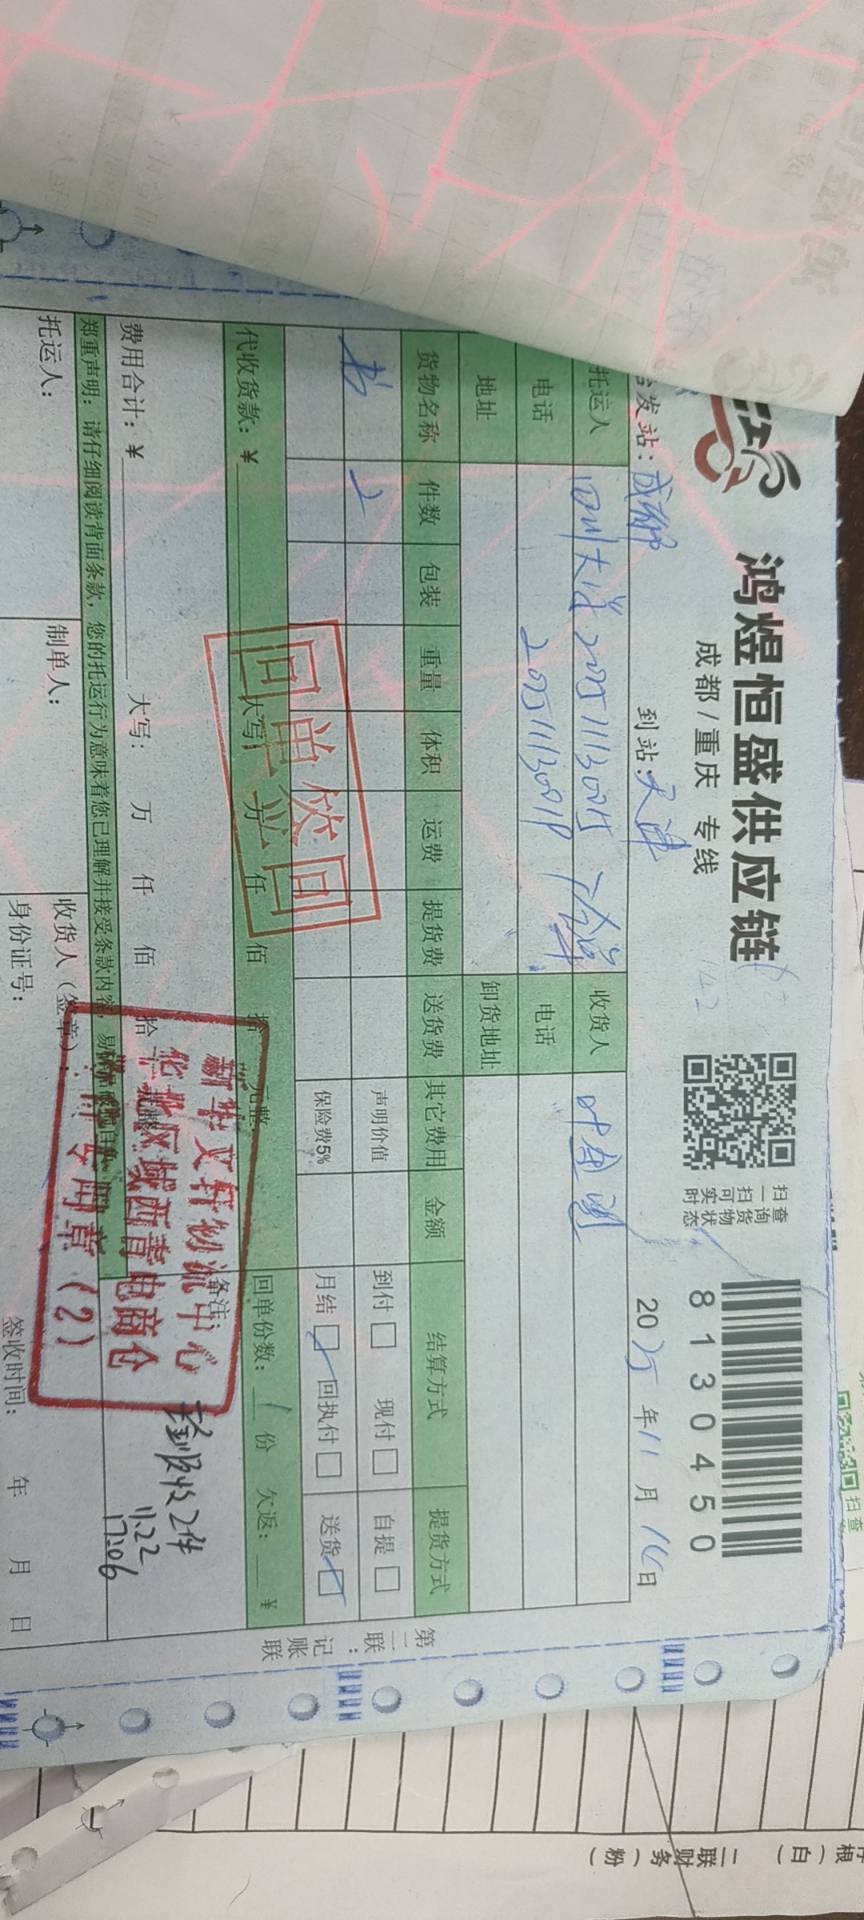 鸿煜恒盛供应链
成都/重庆 专线
扫一扫可实时
查询货物状态
81304500
发站：成都
到站：天津
2025年11月16日
托运人
收货人
电话
电话
地址
卸货地址
货物名称 件数 包装 重量 体积 运费 提货费 送货费 其它费用 金额 结算方式 提货方式
书 2
声明价值
到付□ 现付□ 自提□
保险费5%
月结□ 回执付□ 送货□
回单签回
代收货款：¥ 大写 万 仟 佰 拾 元整
回单份数：1份 欠返：¥
费用合计：¥ 大写： 万 仟 佰 拾
备注：
新华文轩物流中心
华北区域西青电商仓
专用章（2）
实收2件
11.22
17:06
郑重声明：请仔细阅读背面条款，您的托运行为意味着您已理解并接受条款内容，易
托运人：
制单人：
收货人（签章）：
身份证号：
签收时间： 年 月 日
第二联：记账联
根（白） 二联财务（粉）
扫
查